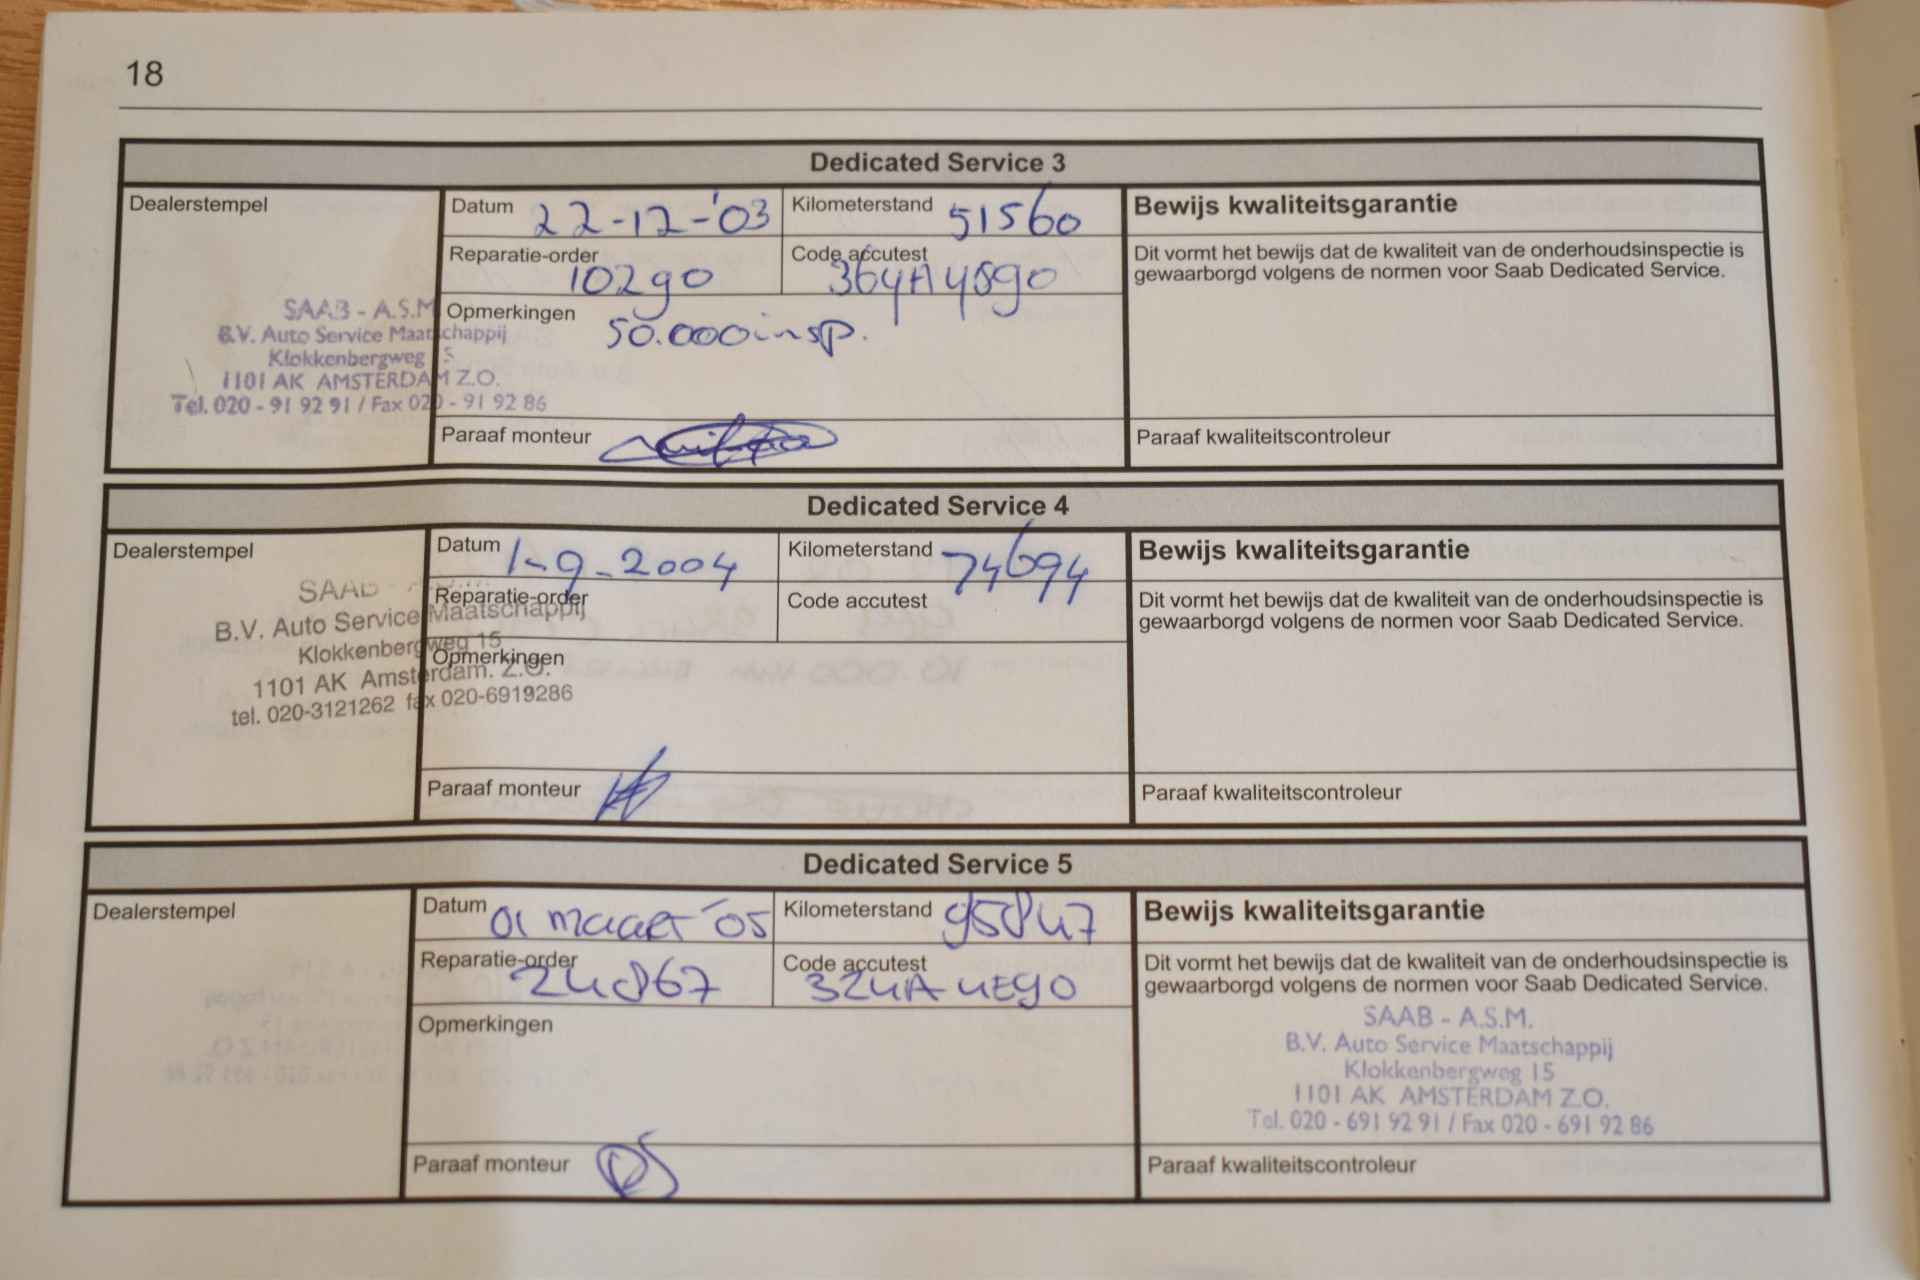 18
Dedicated Service 3
Dealerstempel
Datum 22-12-'03
Kilometerstand 51560
Bewijs kwaliteitsgarantie
Reparatie-order 10290
Code accutest 364A4890
Dit vormt het bewijs dat de kwaliteit van de onderhoudsinspectie is
gewaarborgd volgens de normen voor Saab Dedicated Service.
SAAB - A.S.M
B.V. Auto Service Maatschappij
Klokkenbergweg 5
1101 AK AMSTERDAM Z.O.
Tel. 020 - 91 92 91 / Fax 020 - 91 92 86
Opmerkingen 50.000 insp.
Paraaf monteur
Paraaf kwaliteitscontroleur
Dedicated Service 4
Dealerstempel
Datum 1-9-2004
Kilometerstand 74694
Bewijs kwaliteitsgarantie
Reparatie-order
Code accutest
Dit vormt het bewijs dat de kwaliteit van de onderhoudsinspectie is
gewaarborgd volgens de normen voor Saab Dedicated Service.
SAAB
B.V. Auto Service Maatschappij
Klokkenbergweg 15
1101 AK Amsterdam. Z.O.
tel. 020-3121262 fax 020-6919286
Opmerkingen
Paraaf monteur
Paraaf kwaliteitscontroleur
Dedicated Service 5
Dealerstempel
Datum 01 maart '05
Kilometerstand 95847
Bewijs kwaliteitsgarantie
Reparatie-order 24867
Code accutest 324A4E90
Dit vormt het bewijs dat de kwaliteit van de onderhoudsinspectie is
gewaarborgd volgens de normen voor Saab Dedicated Service.
Opmerkingen
SAAB - A.S.M.
B.V. Auto Service Maatschappij
Klokkenbergweg 15
1101 AK AMSTERDAM Z.O.
Tel. 020 - 691 92 91 / Fax 020 - 691 92 86
Paraaf monteur
Paraaf kwaliteitscontroleur